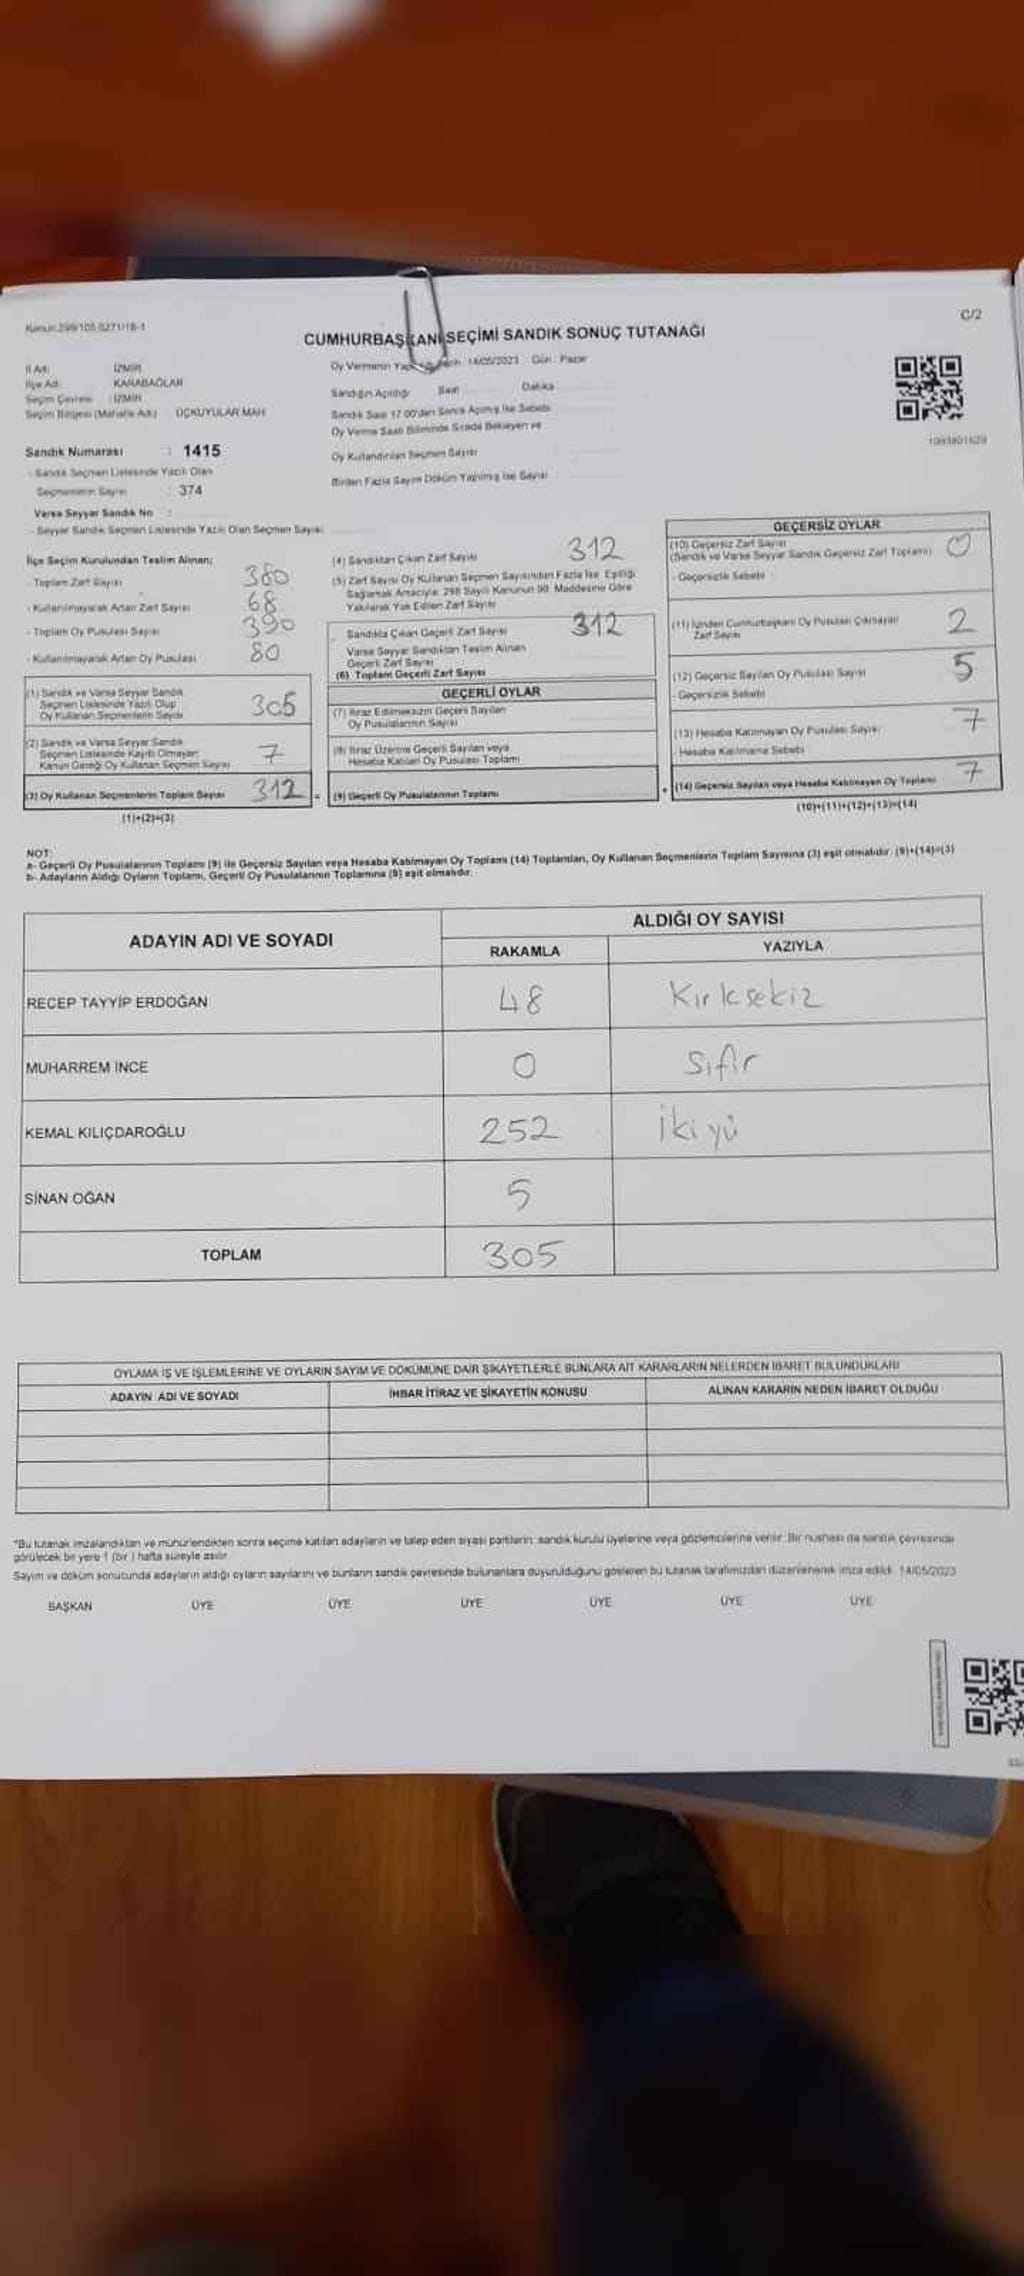 Kanun:298/105.6271/18-1
C/2
CUMHURBAŞKANI SEÇİMİ SANDIK SONUÇ TUTANAĞI
İl Adı: İZMİR
İlçe Adı: KARABAĞLAR
Seçim Çevresi :İZMİR
Seçim Bölgesi (Mahalle Adı) ÜÇKUYULAR MAH
Sandık Numarası : 1415
- Sandık Seçmen Listesinde Yazılı Olan
Seçmenlerin Sayısı : 374
Varsa Seyyar Sandık No :
- Seyyar Sandık Seçmen Listesinde Yazılı Olan Seçmen Sayısı
Oy Vermenin 14/05/2023 Gün : Pazar
Sandığın Açıldığı Saat Dakika
Sandık Saat 17.00'den Sonra Açılmış İse Sebebi
Oy Verme Saati Bitiminde Sırada Bekleyen ve
Oy Kullandırılan Seçmen Sayısı
Birden Fazla Sayım Döküm Yapılmış İse Sayısı
İlçe Seçim Kurulundan Teslim Alınan;
- Toplam Zarf Sayısı 380
- Kullanılmayarak Artan Zarf Sayısı 68
- Toplam Oy Pusulası Sayısı 390
- Kullanılmayarak Artan Oy Pusulası 80
(1) Sandık ve Varsa Seyyar Sandık
Seçmen Listesinde Yazılı Olup
Oy Kullanan Seçmenlerin Sayısı 305
(2) Sandık ve Varsa Seyyar Sandık
Seçmen Listesinde Kayıtlı Olmayan
Kanun Gereği Oy Kullanan Seçmen Sayısı 7
(3) Oy Kullanan Seçmenlerin Toplam Sayısı 312
(1)+(2)=(3)
(4) Sandıktan Çıkan Zarf Sayısı 312
(5) Zarf Sayısı Oy Kullanan Seçmen Sayısından Fazla İse, Eşitliği
Sağlamak Amacıyla, 298 Sayılı Kanunun 98. Maddesine Göre
Yakılarak Yok Edilen Zarf Sayısı
Sandıkta Çıkan Geçerli Zarf Sayısı 312
Varsa Seyyar Sandıktan Teslim Alınan
Geçerli Zarf Sayısı
(6) Toplam Geçerli Zarf Sayısı
GEÇERLİ OYLAR
(7) İtiraz Edilmeksizin Geçerli Sayılan
Oy Pusulalarının Sayısı
(8) İtiraz Üzerine Geçerli Sayılan veya
Hesaba Katılan Oy Pusulası Toplamı
= (9) Geçerli Oy Pusulalarının Toplamı
GEÇERSİZ OYLAR
(10) Geçersiz Zarf Sayısı
(Sandık ve Varsa Seyyar Sandık Geçersiz Zarf Toplamı) 0
- Geçersizlik Sebebi :
(11) İçinden Cumhurbaşkanı Oy Pusulası Çıkmayan
Zarf Sayısı 2
(12) Geçersiz Sayılan Oy Pusulası Sayısı 5
- Geçersizlik Sebebi
(13) Hesaba Katılmayan Oy Pusulası Sayısı 7
- Hesaba Katılmama Sebebi
+ (14) Geçersiz Sayılan veya Hesaba Katılmayan Oy Toplamı 7
(10)+(11)+(12)+(13)=(14)
NOT:
a- Geçerli Oy Pusulalarının Toplamı (9) ile Geçersiz Sayılan veya Hesaba Katılmayan Oy Toplamı (14) Toplamları, Oy Kullanan Seçmenlerin Toplam Sayısına (3) eşit olmalıdır. (9)+(14)=(3)
b- Adayların Aldığı Oyların Toplamı, Geçerli Oy Pusulalarının Toplamına (9) eşit olmalıdır.
ADAYIN ADI VE SOYADI
ALDIĞI OY SAYISI
RAKAMLA YAZIYLA
RECEP TAYYİP ERDOĞAN 48 Kırksekiz
MUHARREM İNCE 0 Sıfır
KEMAL KILIÇDAROĞLU 252 İkiyü
SİNAN OĞAN 5
TOPLAM 305
OYLAMA İŞ VE İŞLEMLERİNE VE OYLARIN SAYIM VE DÖKÜMÜNE DAİR ŞİKAYETLERLE BUNLARA AİT KARARLARIN NELERDEN İBARET BULUNDUKLARI
ADAYIN ADI VE SOYADI İHBAR İTİRAZ VE ŞİKAYETİN KONUSU ALINAN KARARIN NEDEN İBARET OLDUĞU
*Bu tutanak imzalandıktan ve mühürlendikten sonra seçime katılan adayların ve talep eden siyasi partilerin, sandık kurulu üyelerine veya gözlemcilerine verilir. Bir nüshası da sandık çevresinde
görülecek bir yere 1 (bir ) hafta süreyle asılır.
Sayım ve döküm sonucunda adayların aldığı oyların sayılarını ve bunların sandık çevresinde bulunanlara duyurulduğunu gösteren bu tutanak tarafımızdan düzenlenerek imza edildi. 14/05/2023
BAŞKAN ÜYE ÜYE ÜYE ÜYE ÜYE ÜYE